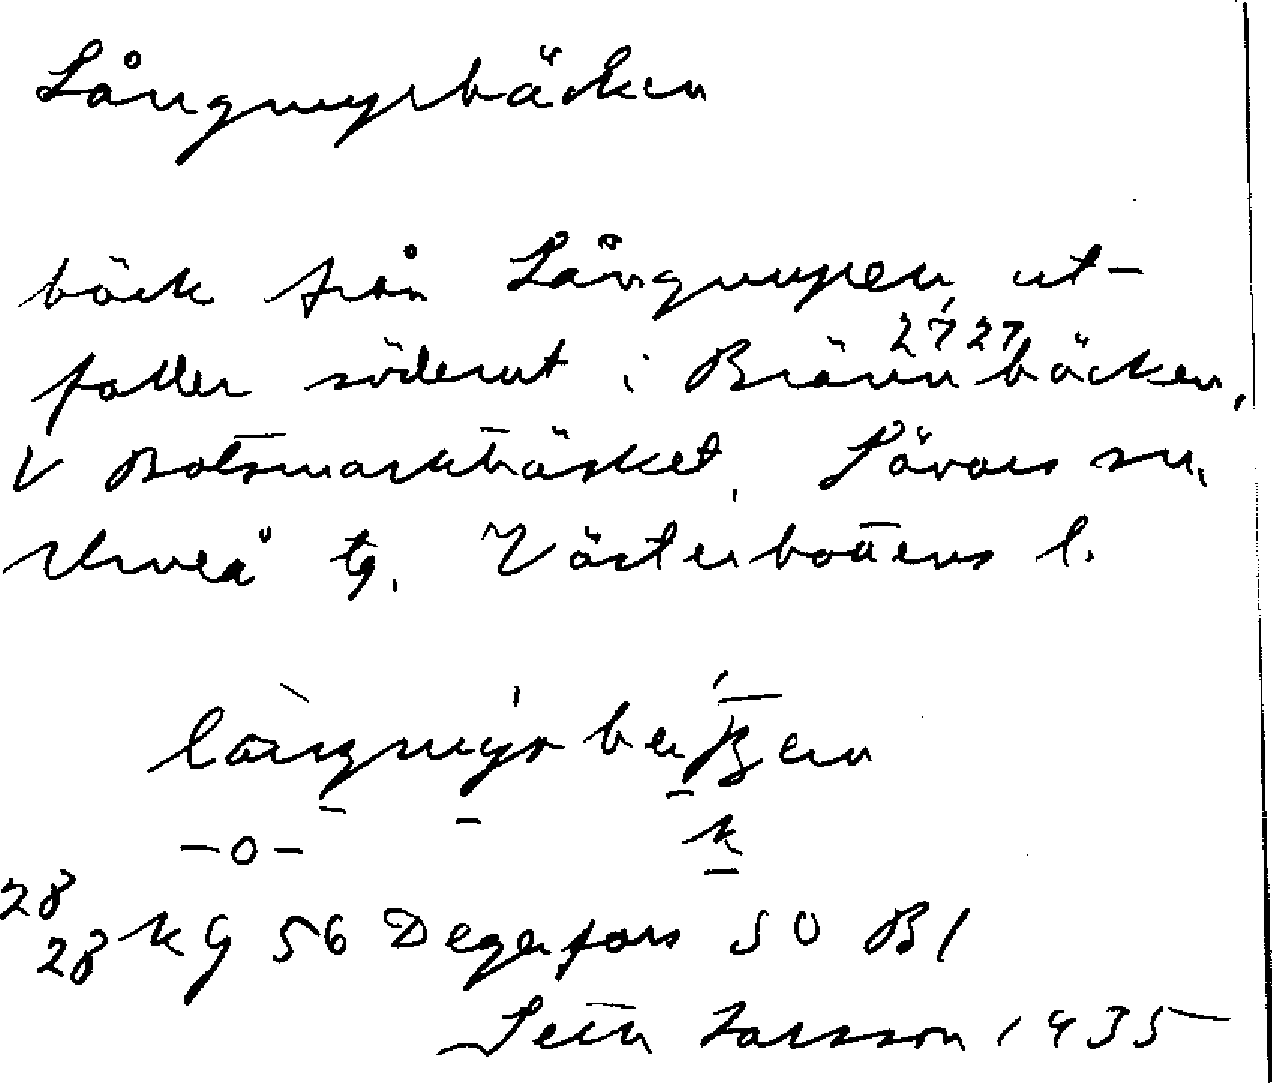 Långmyrbäcken
bäck från Långmyren, ut-
faller söderut i Brännbäcken,
27 27
V Botsmarkträsket. Sävars sn.
Umeå tg. Västerbottens l.
-o-
k
28
28 KG 56 Degerfors SO Bl
Seth Larsson 1935